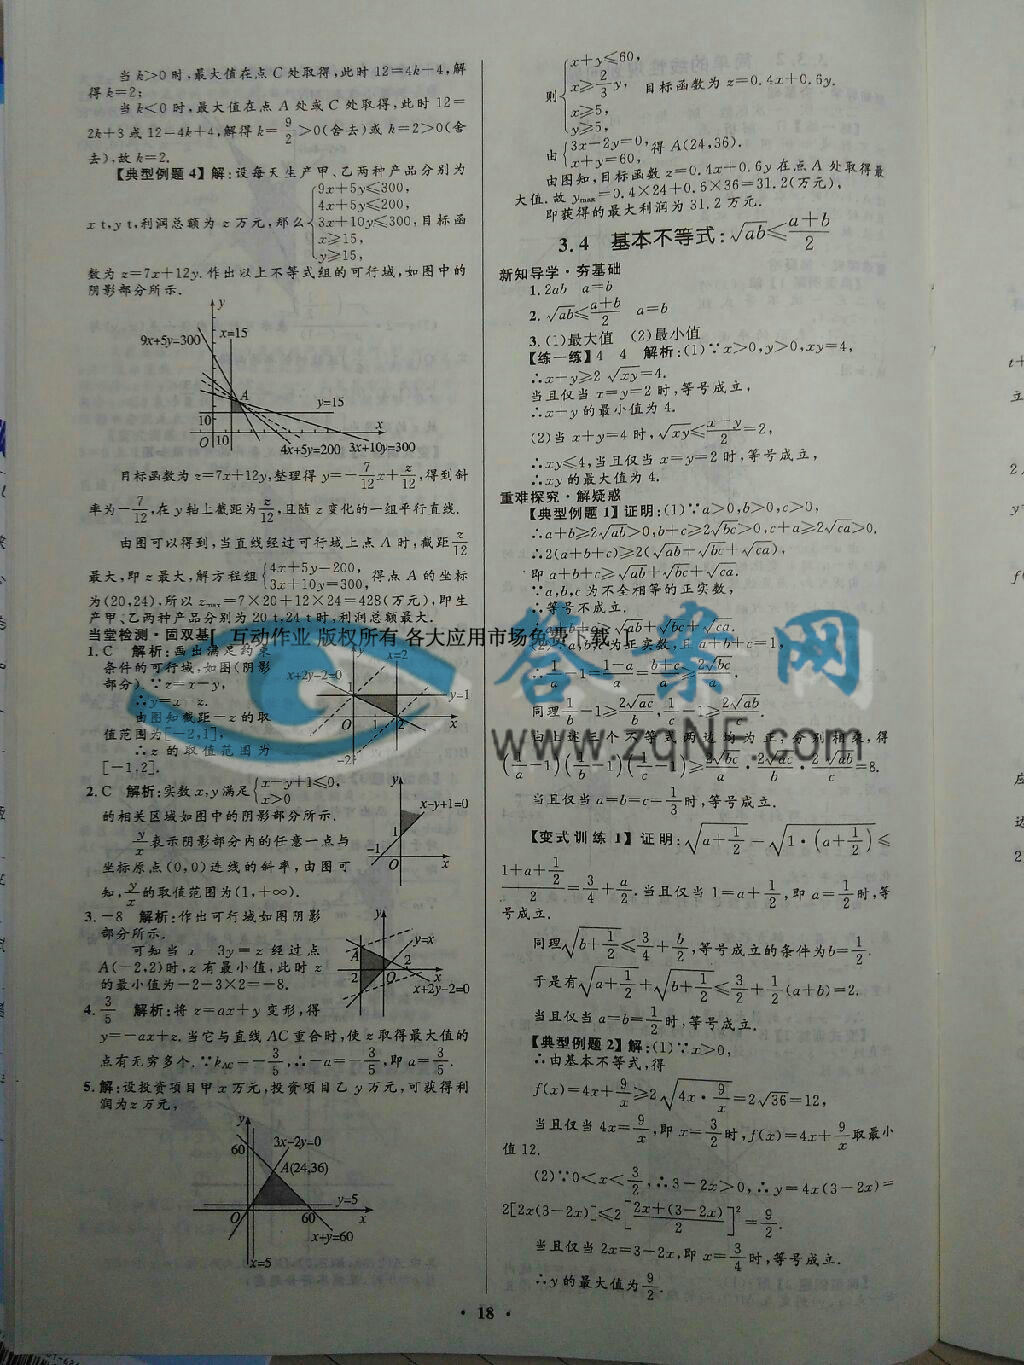 当k>0时,最大值在点C处取得,此时12=4k+4,解
得k=2;
当k<0时,最大值在点A处或C处取得,此时12=
2k+3或12=4k+4,解得k=9/2>0(舍去)或k=2>0(舍
去),故k=2.
【典型例题4】解:设每天生产甲、乙两种产品分别为
x t,y t,利润总额为z万元,那么
9x+5y≤300,
4x+5y≤200,
3x+10y≤300,目标函
x≥15,
y≥15,
数为z=7x+12y.作出以上不等式组的可行域,如图中的
阴影部分所示.
y
9x+5y=300
x=15
A
y=15
10
O 10
x
4x+5y=200 3x+10y=300
目标函数为z=7x+12y,整理得y=-7/12x+z/12,得到斜
率为-7/12,在y轴上截距为z/12,且随z变化的一组平行直线.
由图可以得到,当直线经过可行域上点A时,截距z/12
最大,即z最大,解方程组
4x+5y=200,
3x+10y=300,
得点A的坐标
为(20,24),所以zmax=7×20+12×24=428(万元),即生
产甲、乙两种产品分别为20 t,24 t时,利润总额最大.
当堂检测·固双基
互动作业 版权所有 各大应用市场免费下载
1.C 解析:画出满足约束
条件的可行域,如图(阴影
部分).∵z=x-y,
∴y=x-z.
由图知截距-z的取
值范围为[-2,1],
∴z的取值范围为
[-1,2].
y
x=2
x+2y-2=0
1
y=1
O 1 2 x
-2
2.C 解析:实数x,y满足
x-y+1≤0,
x>0
的相关区域如图中的阴影部分所示.
y/x表示阴影部分内的任意一点与
坐标原点(0,0)连线的斜率,由图可
知,y/x的取值范围为(1,+∞).
y
x-y+1=0
1
-1
O x
3.-8 解析:作出可行域如图阴影
部分所示.
可知当x-3y=z经过点
A(-2,2)时,z有最小值,此时z
的最小值为-2-3×2=-8.
y
y=x
A
2
O
x
x+2y-2=0
4.3/5 解析:将z=ax+y变形,得
y=-ax+z.当它与直线AC重合时,使z取得最大值的
点有无穷多个.∵kAC=-3/5,∴-a=-3/5,即a=3/5.
5.解:设投资项目甲x万元,投资项目乙y万元,可获得利
润为z万元,
y
60
3x-2y=0
A(24,36)
y=5
O 60 x
x+y=60
x=5
则
x+y≤60,
x≥2/3y,
x≥5,
y≥5,
目标函数为z=0.4x+0.6y.
由
3x-2y=0,
x+y=60,
得A(24,36).
由图知,目标函数z=0.4x+0.6y在点A处取得最
大值.故ymax=0.4×24+0.6×36=31.2(万元),
即获得的最大利润为31.2万元.
3.4 基本不等式:√ab≤(a+b)/2
新知导学·夯基础
1.2ab a=b
2.√ab≤(a+b)/2 a=b
3.(1)最大值 (2)最小值
【练一练】4 4 解析:(1)∵x>0,y>0,xy=4,
∴x+y≥2√xy=4.
当且仅当x=y=2时,等号成立,
∴x+y的最小值为4.
(2)当x+y=4时,√xy≤(x+y)/2=2,
∴xy≤4,当且仅当x=y=2时,等号成立,
∴xy的最大值为4.
重难探究·解疑惑
【典型例题1】证明:(1)∵a>0,b>0,c>0,
∴a+b≥2√ab>0,b+c≥2√bc>0,c+a≥2√ca>0.
∴2(a+b+c)≥2(√ab+√bc+√ca),
即a+b+c≥√ab+√bc+√ca.
∵a,b,c为不全相等的正实数,
∴等号不成立.
∴a+b+c>√ab+√bc+√ca.
(2)∵a,b,c为正实数,且a+b+c=1,
∴1/a-1=(1-a)/a=(b+c)/a≥2√bc/a.
同理1/b-1≥2√ac/b,1/c-1≥2√ab/c.
由上述三个不等式两边均为正,分别相乘,得
(1/a-1)(1/b-1)(1/c-1)≥2√bc/a·2√ac/b·2√ab/c=8.
当且仅当a=b=c=1/3时,等号成立.
答案网
www.zqNF.com
【变式训练1】证明:√(a+1/2)=√(1·(a+1/2))≤
(1+a+1/2)/2=3/4+a/2.当且仅当1=a+1/2,即a=1/2时,等
号成立.
同理√(b+1/2)≤3/4+b/2,等号成立的条件为b=1/2.
于是有√(a+1/2)+√(b+1/2)≤3/2+1/2(a+b)=2.
当且仅当a=b=1/2时,等号成立.
【典型例题2】解:(1)∵x>0,
∴由基本不等式,得
f(x)=4x+9/x≥2√(4x·9/x)=2√36=12,
当且仅当4x=9/x,即x=3/2时,f(x)=4x+9/x取最小
值12.
(2)∵0<x<3/2,∴3-2x>0,∴y=4x(3-2x)=
2[2x(3-2x)]≤2[(2x+(3-2x))/2]²=9/2.
当且仅当2x=3-2x,即x=3/4时,等号成立.
∴y的最大值为9/2.
· 18 ·